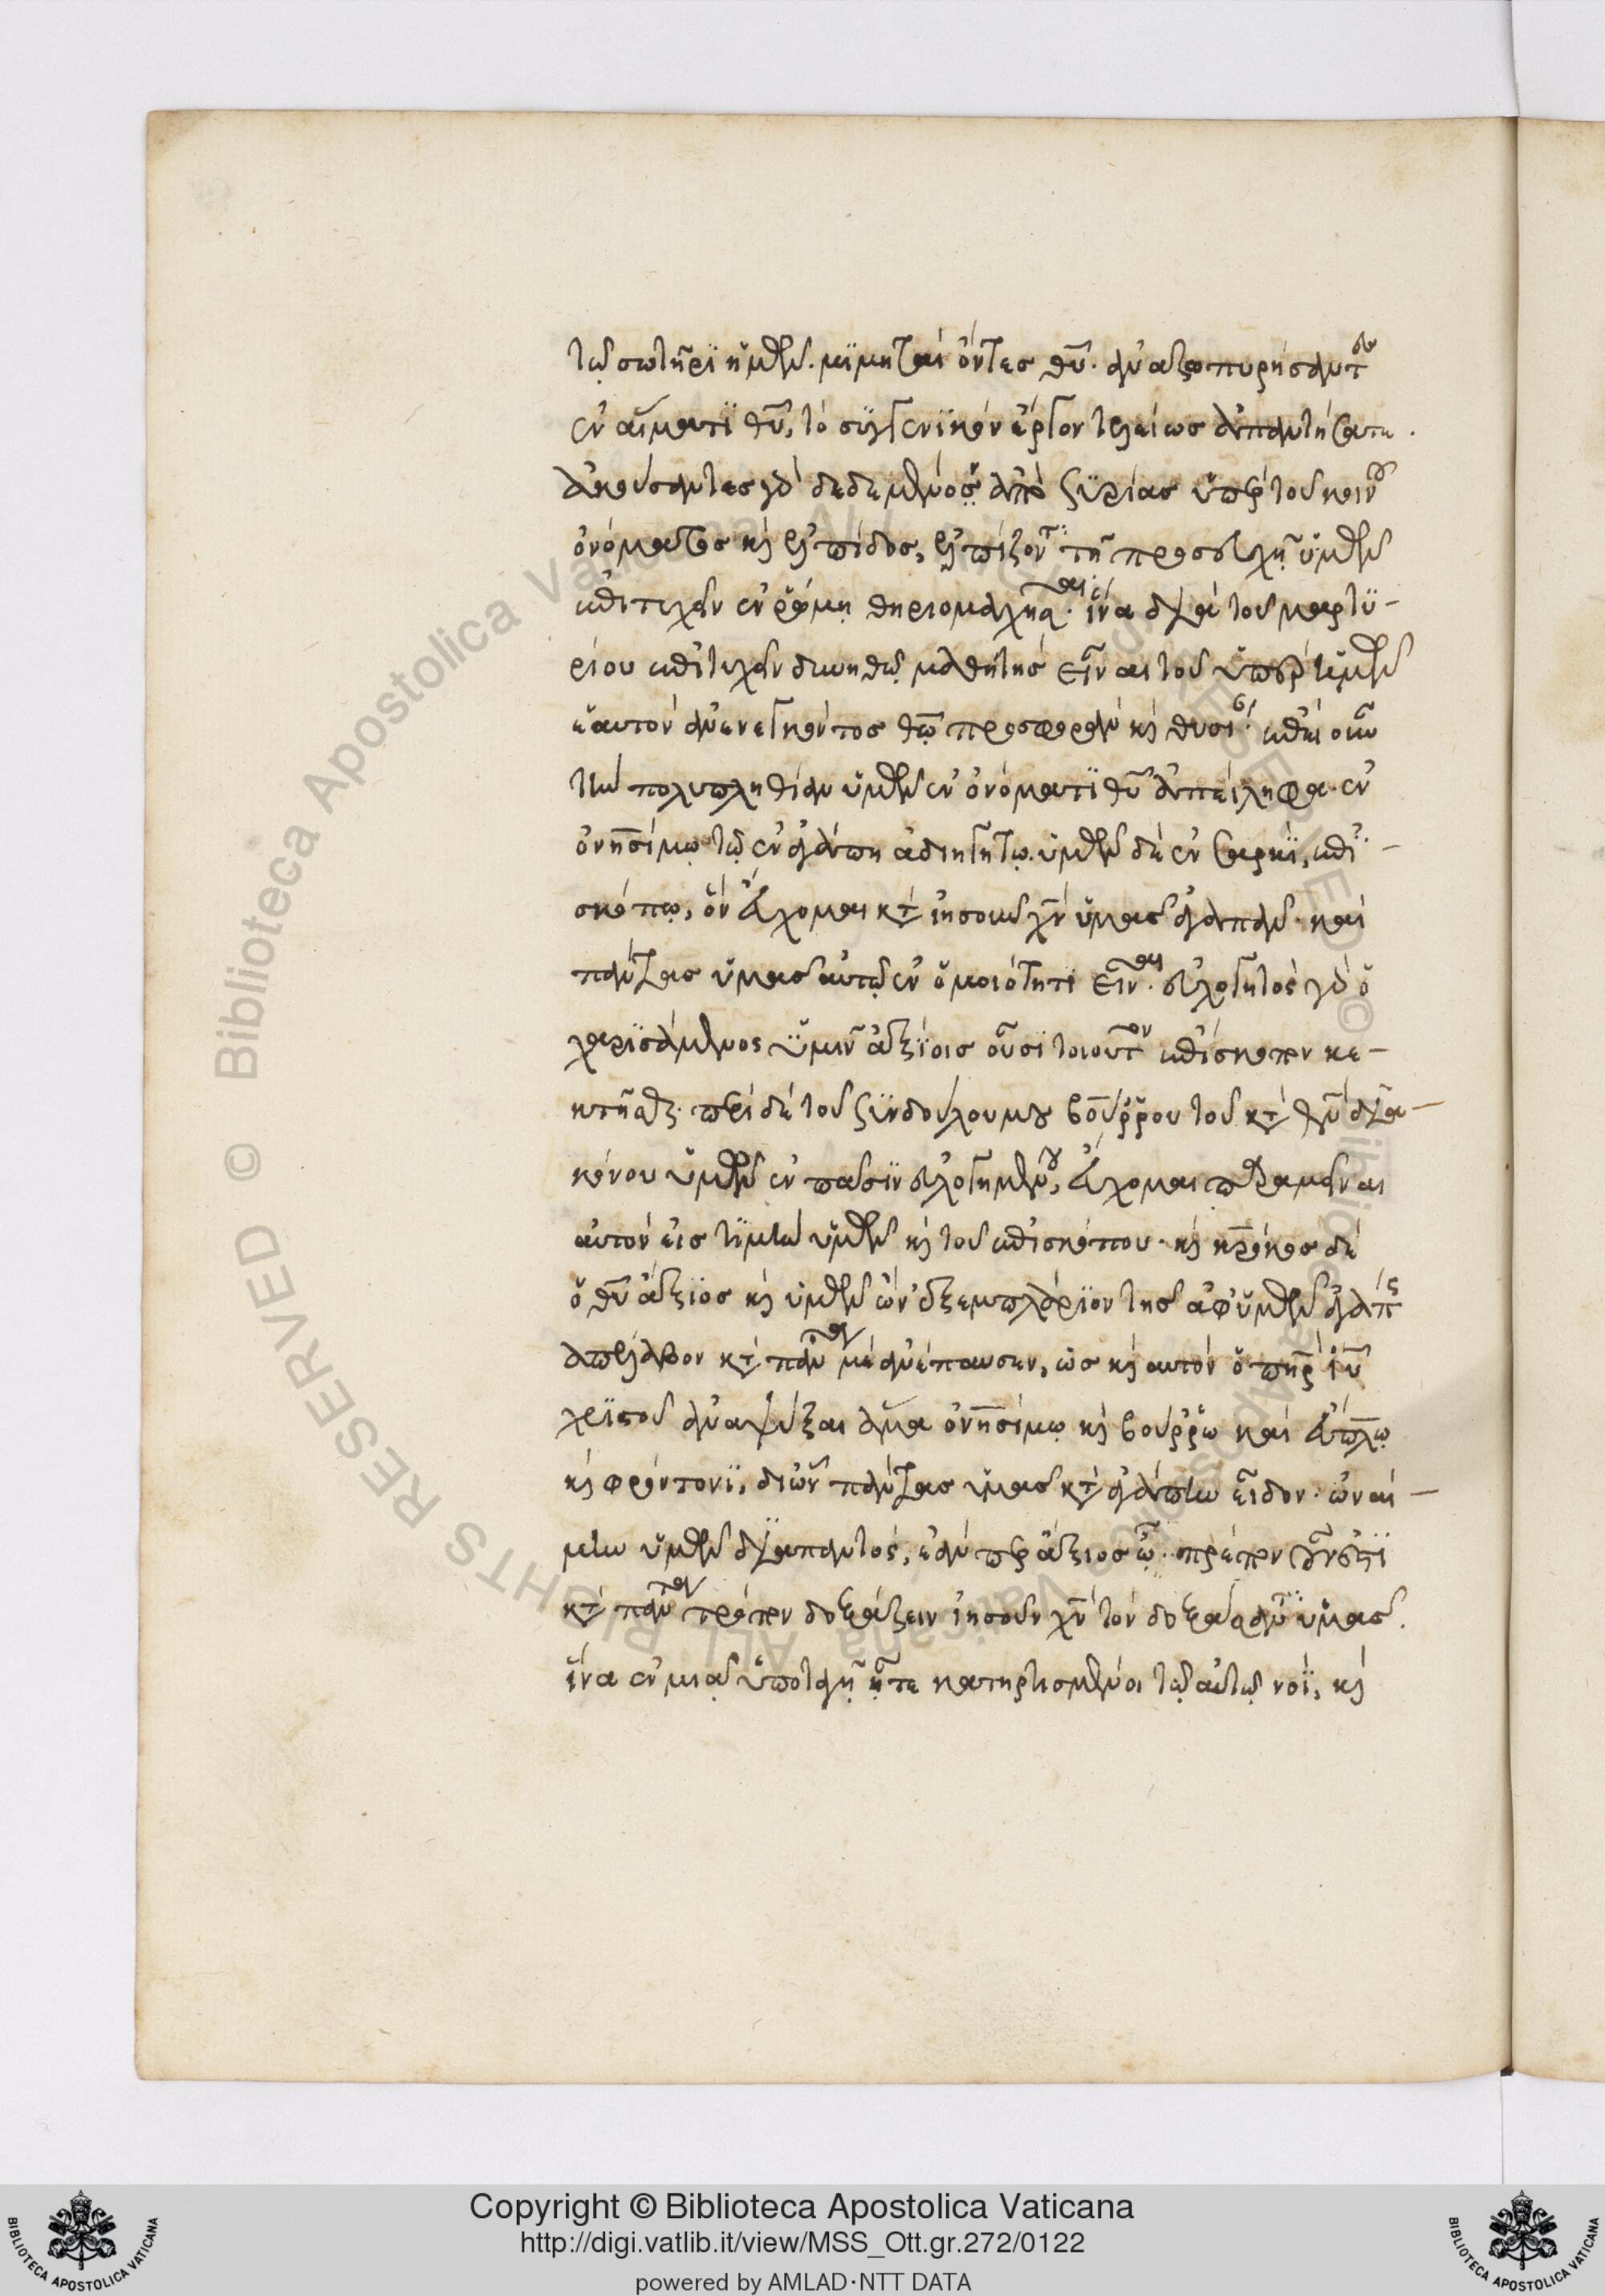 τῶ σωτῆρι ἡμῶν. μιμηταὶ ὄντες θυ. ἀναζωπυρήσαντ
ἐν αἵματι θυ, τὸ συγγενικὸν ἔργον τελείως ἀπαντήσατε.
ἀκούσαντες γὰρ δεδεμένος ἀπὸ συρίας ὑπὲρ τοῦ κοινοῦ
ὀνόματος κ ἐλπίδος, ἐλπίζοντ τῆ προσευχῆ ὑμῶν
ἐπιτυχεῖν ἐν ῥώμη θηριομαχῆσαι. ἵνα διὰ τοῦ μαρτυ-
ρίου ἐπιτυχεῖν δυνηθῶ μαθητὴς εἶναι τοῦ ὑπὲρ ἡμῶν
ἑαυτὸν ἀνενεγκόντος θῶ προσφορὰν κ θυσί. ἐπεὶ οὖν
τὴν πολυπληθίαν ὑμῶν ἐν ὀνόματι θυ ἀπείληφα. ἐν
ὀνησίμω τῶ ἐν ἀγάπη ἀδιηγήτω. ὑμῶν δὲ ἐν σαρκὶ, ἐπι-
σκόπω, ὃν εὔχομαι κτ ἰησοῦν χν ὑμᾶς ἀγαπᾶν. καὶ
πάντας ὑμᾶς αὐτῶ ἐν ὁμοιότητι εἶναι. εὐλογητὸς γὰρ ὁ
χαρισάμενος ὑμῖν ἀξίοις οὖσι τοιοῦτον ἐπίσκοπον κε-
κτῆσθαι. περὶ δὲ τοῦ συνδούλου μου βούρρου τοῦ κτ θν δια-
κόνου ὑμῶν ἐν πᾶσιν εὐλογημένου, εὔχομαι παραμεῖναι
αὐτὸν εἰς τιμὴν ὑμῶν κ τοῦ ἐπισκόπου. κ κρόκος δὲ
ὁ θυ ἄξιος κ ὑμῶν ὃν ἐξεμπλάριον τῆς ἀφ' ὑμῶν ἀγάπης
ἀπέλαβον κτ πάντα με ἀνέπαυσεν, ὡς κ αὐτὸν ὁ πηρ ιυ
χριστοῦ ἀναψύξαι ἅμα ὀνησίμω κ βούρρω καὶ εὔπλω
κ φρόντονι, δι' ὧν πάντας ὑμᾶς κτ ἀγάπην εἶδον. ὀναί-
μην ὑμῶν διαπαντός, ἐάν περ ἄξιος ὦ. πρέπον οὖν ἐστὶ
κτ πάντα τρόπον δοξάζειν ἰησοῦν χν τὸν δοξάσαντα ὑμᾶς.
ἵνα ἐν μιᾶ ὑποταγῆ ἦτε κατηρτισμένοι τῶ αὐτῶ νοῒ, κ
Copyright © Biblioteca Apostolica Vaticana
http://digi.vatlib.it/view/MSS_Ott.gr.272/0122
powered by AMLAD·NTT DATA